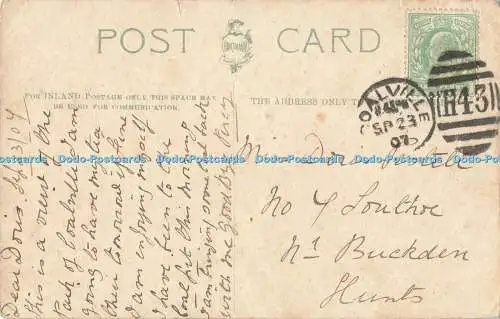 POST CARD
FOR INLAND POSTAGE ONLY THIS SPACE MAY
BE USED FOR COMMUNICATION.
THE ADDRESS ONLY TO
COALVILLE
SP 23
07
H43
Dear Doris. Sep 23/07
This is a view of the
Park of Coalville I am
going to have my tea
there tomorrow if fine
I am enjoying myself
I have been to the
coal pit this morning
I am bringing some coal back
with me Good Bye Percy
Miss Doris
No 4 Southoe
Nr Buckden
Hunts
Dodo-Postcards Dodo-Postcards Dodo-Postcards Dodo-Postcards Dodo-Postcards